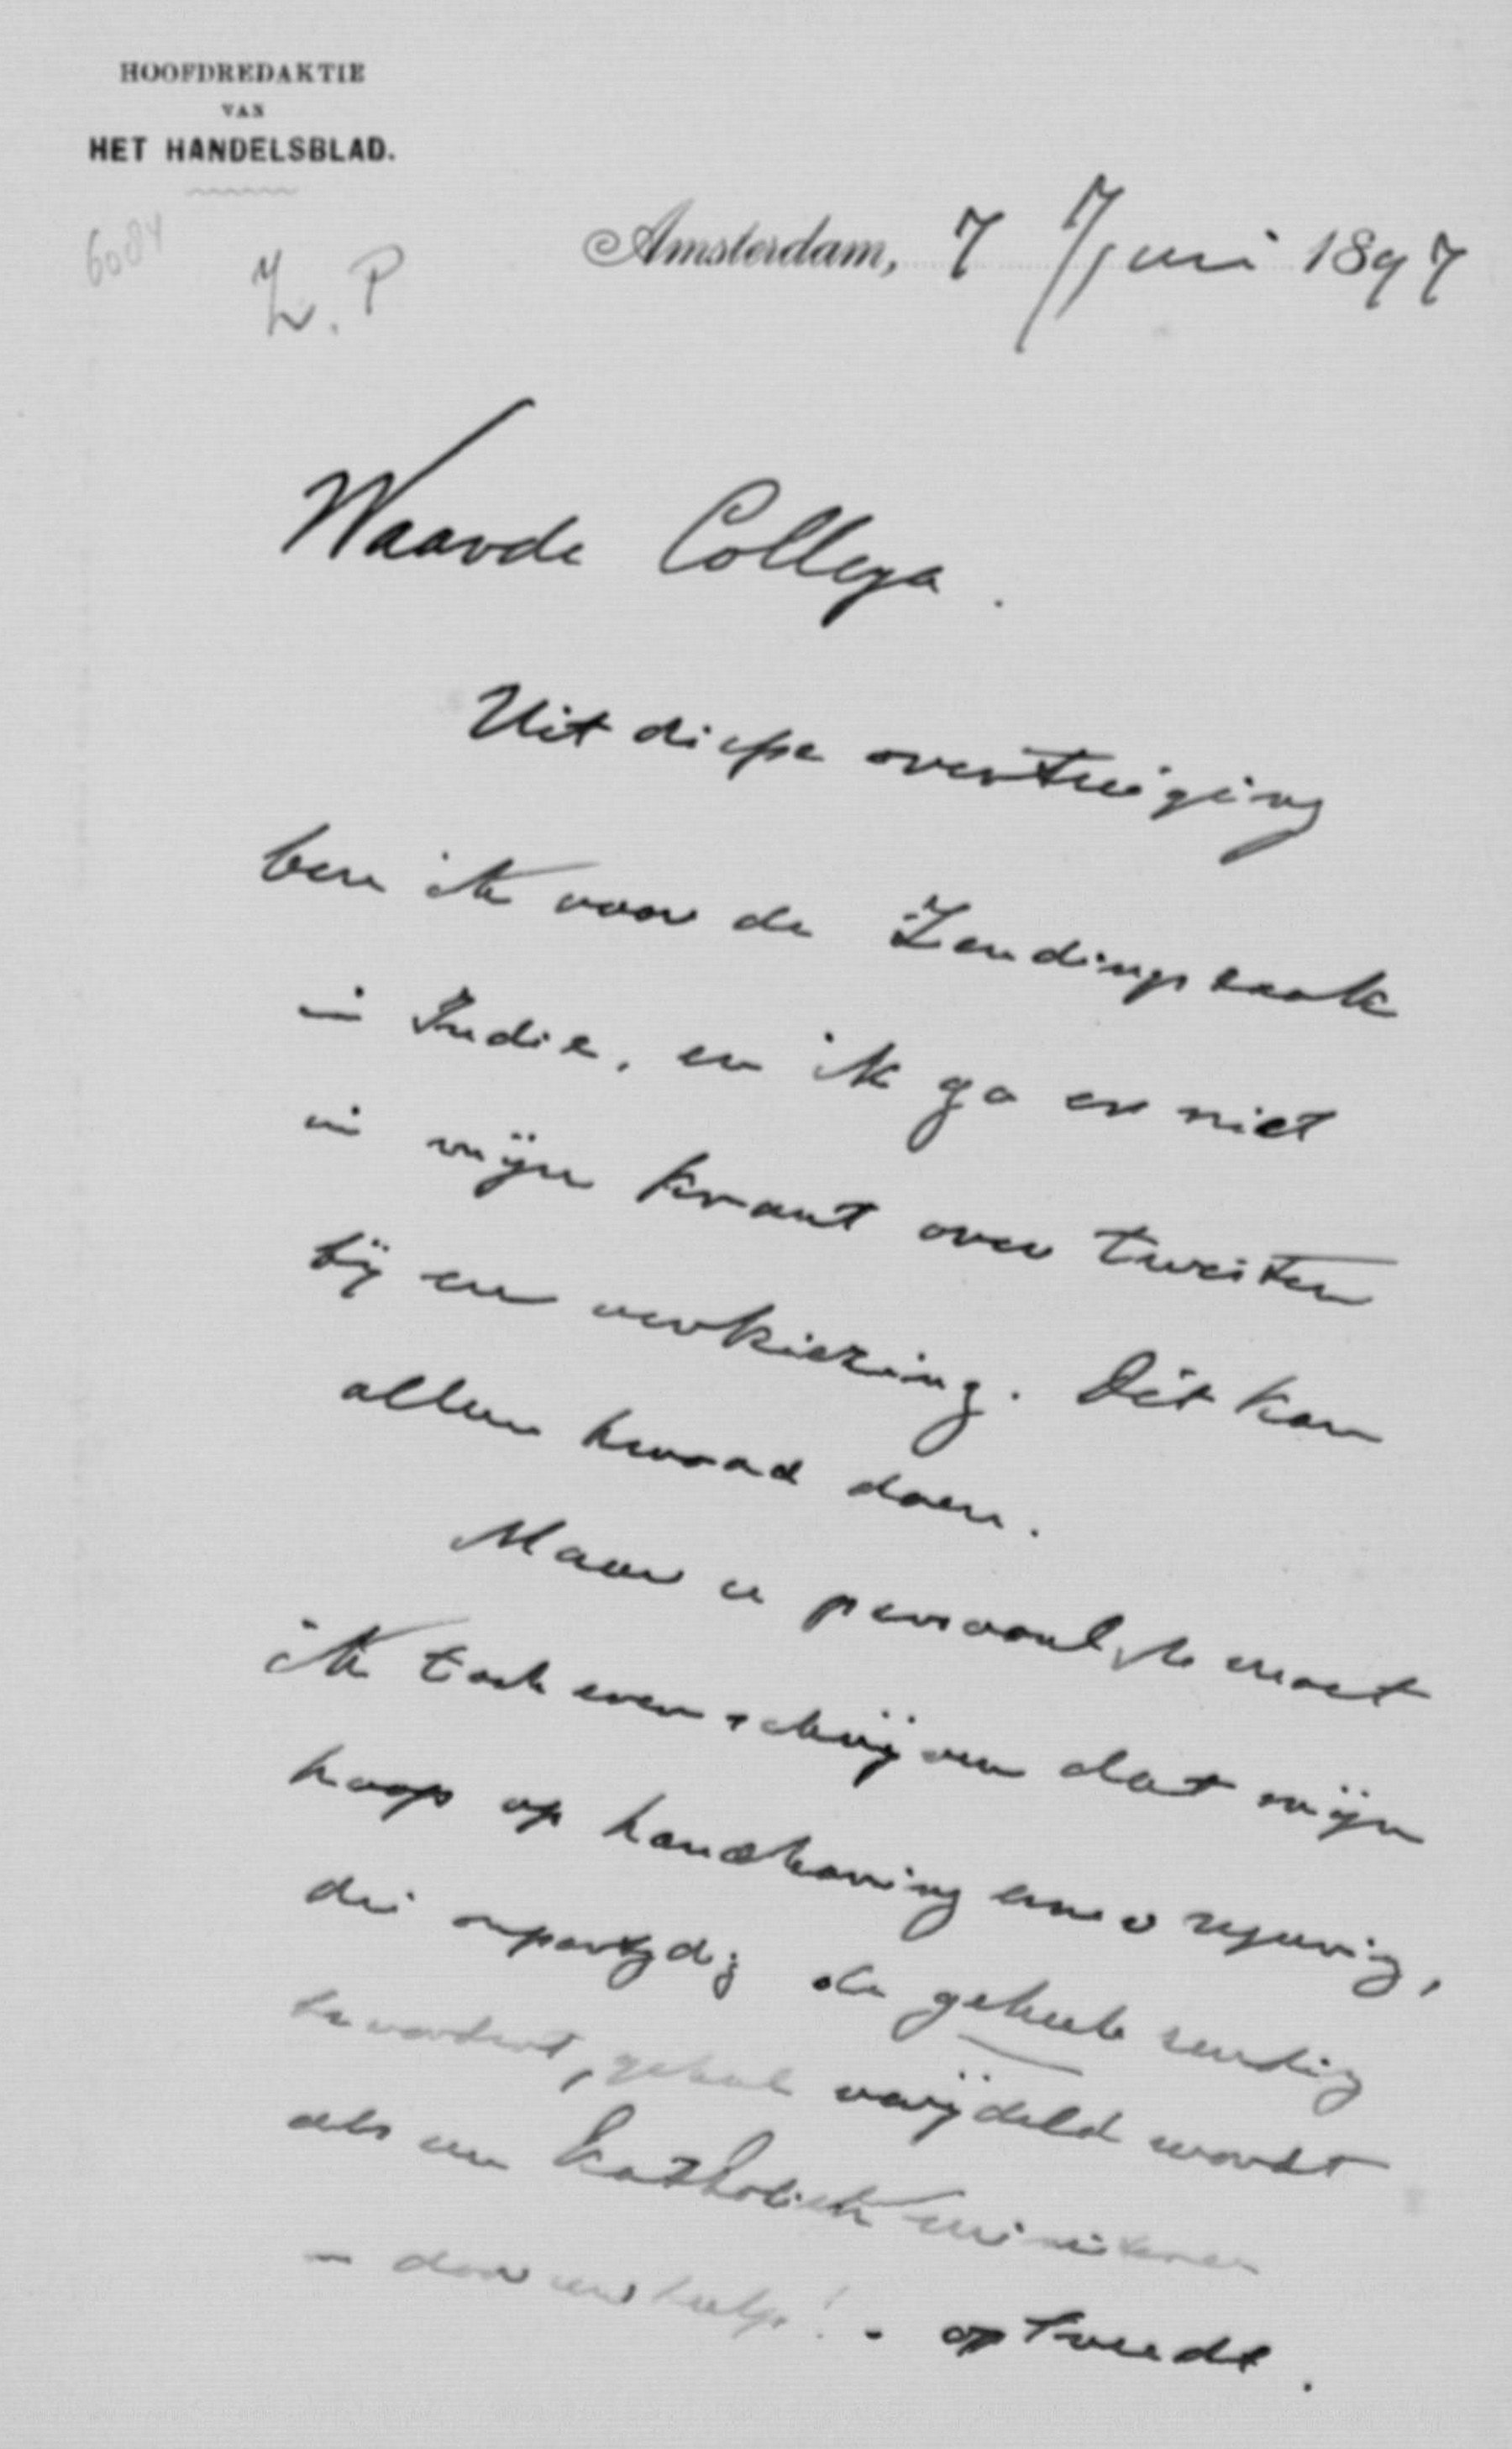 HOOFDREDAKTIE
VAN
HET HANDELSBLAD.
6084
Z. P
Amsterdam, 7 Juni 1897
Waarde Collega.
Uit diepe overtuiging
ben ik voor de Zendingszaak
in Indie, en ik ga er niet
in mijn krant over twisten
bij een verkiezing. Dit kan
alleen kwaad doen.
Maar u persoonlijk moet
ik toch even schrijven dat mijn
hoop op handhaving eener regeering,
die onpartijdig de geheele zending
bevordert, geheel verijdeld wordt
als een Katholiek minister
– door uw hulp! – optreedt.